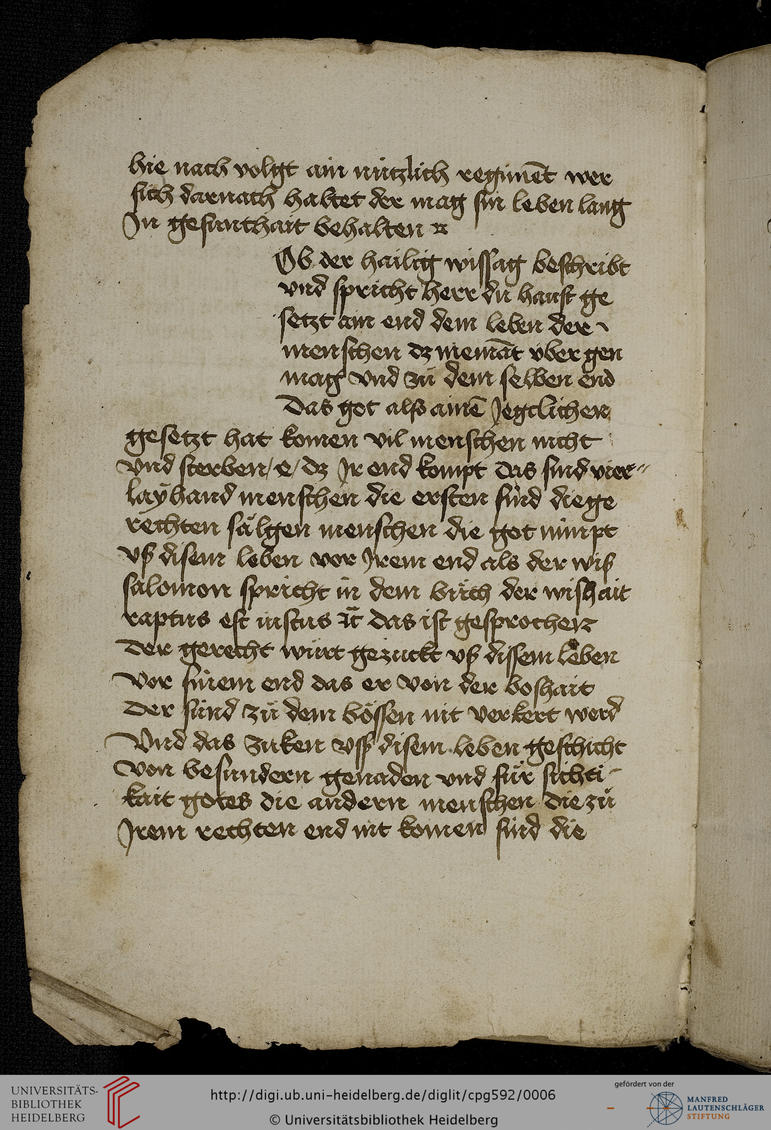 hie nach volgt ain nützlich regimēt wer
sich darnach haltet der mag sin leben lang
In gesunthait behalten
Ob der hailig wissag beschribt
vnd spricht herr du haust ge
setzt ain end dem leben der
menschen dz niemāt vber gen
mag vnd zů dem selben end
Das got alß ainē Jegclichen
gesetzt hat komen vil menschen nicht
vnd sterben / e / dz Ir end kompt das sind vier
layhand menschen die ersten sind die ge
rechten sälgen menschen die got nimpt
vß disem leben vor Irem end als der wiß
salomon spricht in dem bůch der wishait
raptus est iustus das ist gesprochen
Der gerecht würt gezuckt vß dissem leben
vor sinem end das er von der boshait
Der sünd zů dem bössen nit verkert werd
Vnd das zuken vß disem leben geschicht
von besundern genaden vnd für sichti
kait gotes die andern menschen die zů
Irem rechten end nit komen sind die
UNIVERSITÄTS-
BIBLIOTHEK
HEIDELBERG
http://digi.ub.uni-heidelberg.de/diglit/cpg592/0006
© Universitätsbibliothek Heidelberg
gefördert von der
MANFRED
LAUTENSCHLÄGER
STIFTUNG